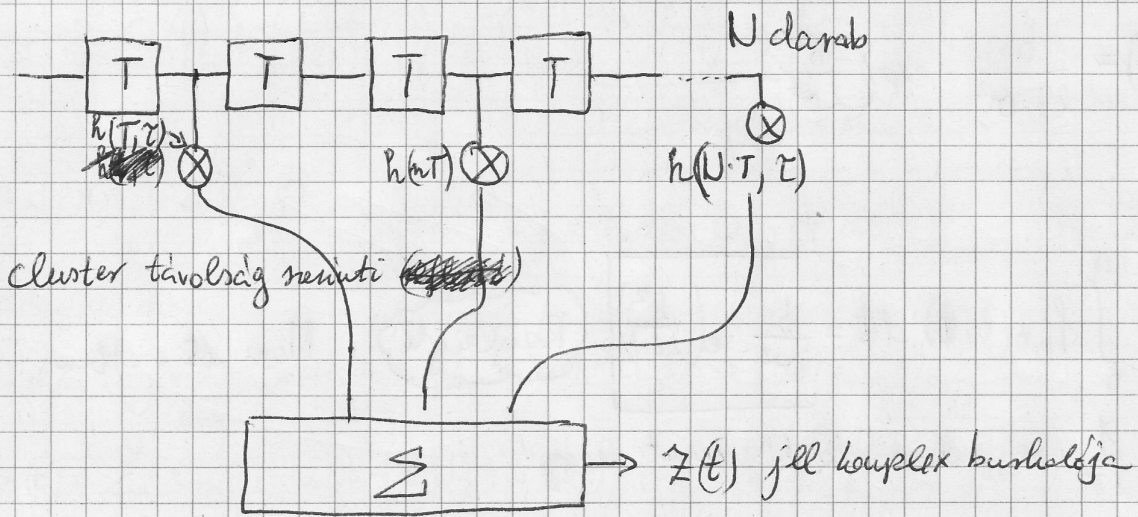 N darab
T T T T
h(T, τ)
h(nT)
h(N·T, τ)
Cluster távolság szerinti
Σ
Z(t) jel komplex burkolója